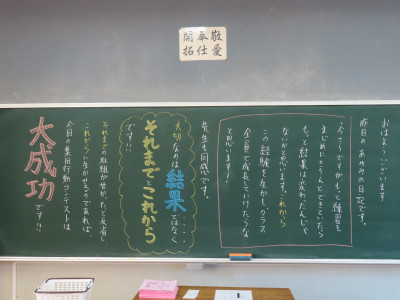 敬愛
奉仕
開拓
おはようございます
昨日のあゆみの日記です。
"今さらですが、もっと練習を
まじめにきちんとできていたら
もっと結果は変わたんじゃ
ないかと思います。これから
この経験を生かし、クラス
全員で成長していけたらな
と思います!"
先生も同感です。
大切なのは結果ではなく
それまでとこれから
です!!
それまでの取組が甘かったと反省し
これからに生かせるのであれば、
今回の集団行動コンテストは
大成功です!!